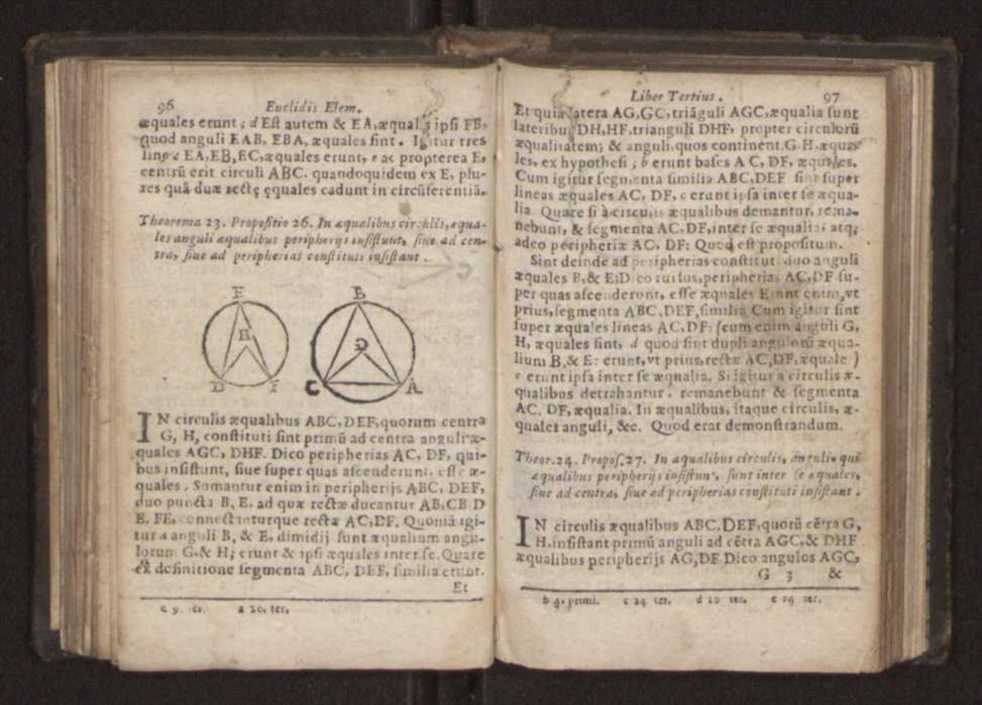 96 Euclidis Elem.
æquales erunt; d Est autem & EA, æqualis ipsi FB,
quod anguli EAB, EBA, æquales sint. Igitur tres
lineæ EA, EB, EC, æquales erunt, e ac propterea E,
centrū erit circuli ABC. quandoquidem ex E, plu-
res quā duæ rectę ęquales cadunt in circūferentiā.
Theorema 23. Propositio 26. In æqualibus circulis, æqua-
les anguli æqualibus peripherijs insistunt, siue ad cen-
tra, siue ad peripherias constituti insistant.
E
H
D F
B
G
C A
IN circulis æqualibus ABC, DEF, quorum centra
G, H, constituti sint primū ad centra anguli æ-
quales AGC, DHF. Dico peripherias AC, DF, qui-
bus insistunt, siue super quas ascenderunt, esse æ-
quales. Sumantur enim in peripherijs ABC, DEF,
duo puncta B, E, ad quæ rectæ ducantur AB, CB, D
E, FE, connectanturque rectæ AC, DF. Quoniā igi-
tur a anguli B, & E, dimidij sunt æqualium angu-
lorum G, & H; erunt & ipsi æquales inter se. Quare
ex definitione segmenta ABC, DEF, similia erunt.
Et
c 9. ter. a 20. ter.
Liber Tertius. 97
Et quia latera AG, GC, triāguli AGC, æqualia sunt
lateribus DH, HF, trianguli DHF, propter circulorū
æqualitatem; & anguli, quos continent, G, H, æqua-
les, ex hypothesi; b erunt bases AC, DF, æquales.
Cum igitur segmenta similia ABC, DEF sint super
lineas æquales AC, DF, c erunt ipsa inter se æqua-
lia. Quare si à circulis æqualibus demantur, rema-
nebunt, & segmenta AC, DF, inter se æqualia; atq;
adeo peripheriæ AC, DF: Quod est propositum.
Sint deinde ad peripherias constituti duo anguli
æquales B, & E: Dico rursus, peripherias AC, DF su-
per quas ascenderunt, esse æquales Erunt enim, vt
prius, segmenta ABC, DEF, similia Cum igitur sint
super æquales lineas AC, DF: (cum enim anguli G,
H, æquales sint, d quod sint dupli angulorū æqua-
lium B, & E: erunt, vt prius, rectæ AC, DF, æquale)
e erunt ipsa inter se æqualia. Si igitur à circulis æ-
qualibus detrahantur, remanebunt & segmenta
AC, DF, æqualia. In æqualibus, itaque circulis, æ-
quales anguli, &c. Quod erat demonstrandum.
Theor. 24. Propos. 27. In æqualibus circulis, anguli qui
æqualibus peripherijs insistunt, sunt inter se æquales,
siue ad centra, siue ad peripherias constituti insistant.
IN circulis æqualibus ABC, DEF, quorū cētra G,
H, insistant primū anguli ad cētra AGC, & DHF
æqualibus peripherijs AG, DF Dico angulos AGC,
G 3 &
b 4. primi. c 24 ter. d 20 ter. e 24 ter.